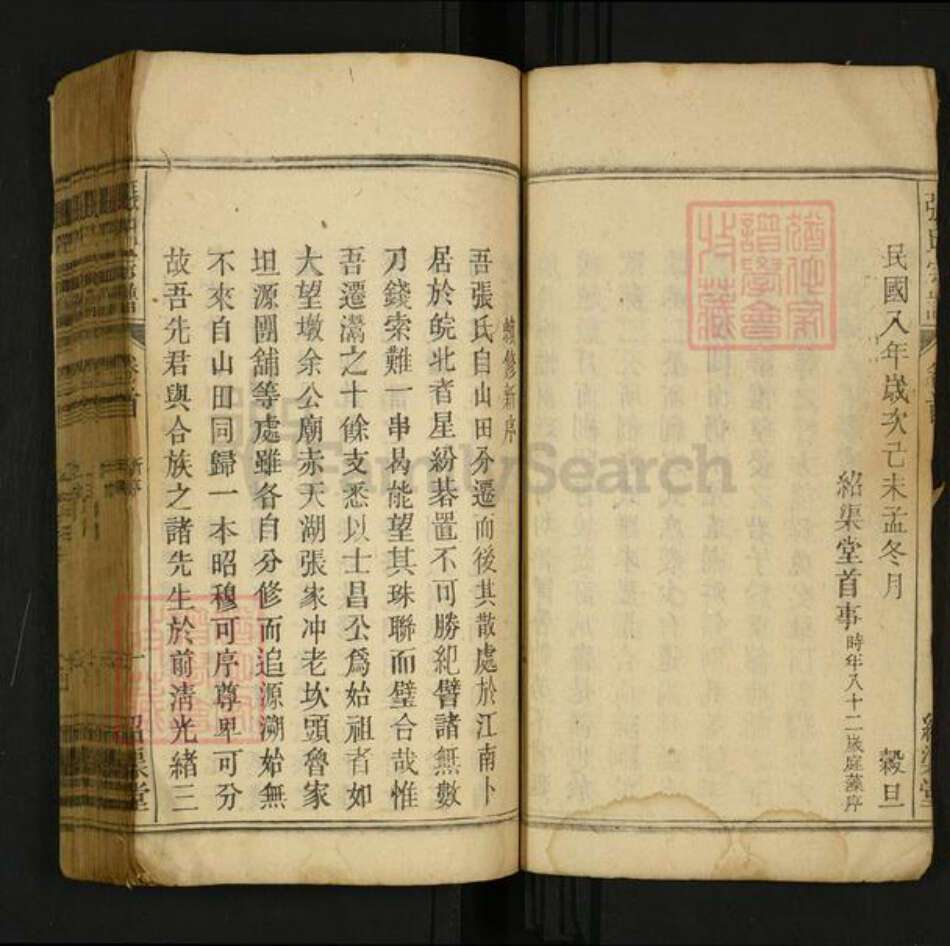 民國八年歲次己未孟冬月 穀旦
紹渠堂首事時年八十二歲庭藻序
續修新序
吾張氏自山田分遷而後其散處於江南卜
居於皖北者星紛碁置不可勝紀譬諸無數
刀錢索難一串曷能望其珠聯而璧合哉惟
吾遷灊之十餘支悉以士昌公為始祖者如
大望墩余公廟赤天湖張家冲老坎頭魯家
坦源團舖等處雖各自分修而追源溯始無
不來自山田同歸一本昭穆可序尊卑可分
故吾先君與合族之諸先生於前清光緒三
卷首
新序
一
紹渠堂
FamilySearch